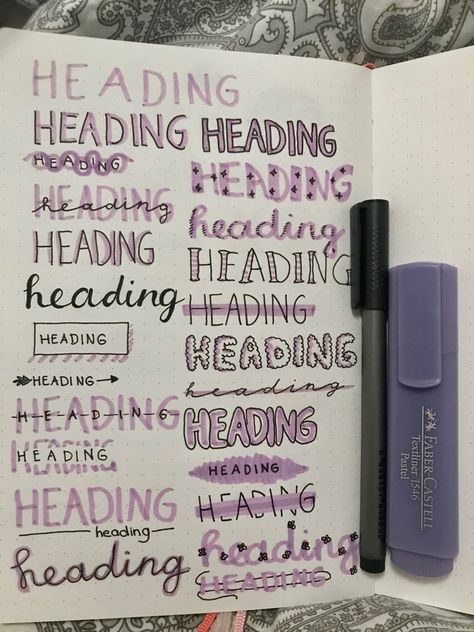 HEADING
HEADING
HEADING
HEADING
heading
HEADING
heading
HEADING
HEADING
HEADING
H-E-A-D-I-N-G
HEADING
HEADING
HEADING
heading
heading
HEADING
HEADING
heading
HEADING
HEADING
HEADING
heading
HEADING
HEADING
HEADING
heading
HEADING
FABER-CASTELL
Textliner 1546
Pastel